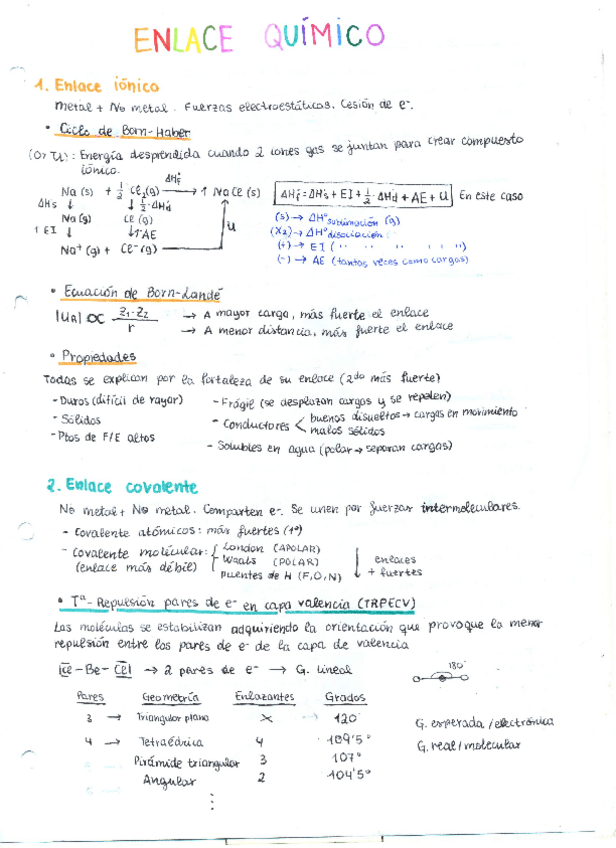 ENLACE QUÍMICO
1. Enlace iónico
metal + No metal. Fuerzas electroestáticas. Cesión de e-.
• Ciclo de Born-Haber
(O> U): Energía desprendida cuando 2 iones gas se juntan para crear compuesto
iónico.
ΔHf
Na (s) + 1/2 Cl2(g) → 1 NaCl (s)
ΔHf = ΔHs + EI + 1/2 · ΔHd + AE + U En este caso
ΔHs ↓ ↓ 1/2·ΔHd
Na (g) Cl (g)
1 EI ↓ ↓1AE U
Na+ (g) + Cl- (g)
(s) → ΔHº sublimación (g)
(X2) → ΔHº disociación
(+) → EI ( '' '' '' '' '' )
(-) → AE (tantas veces como cargas)
• Ecuación de Born-Landé
|UR| ∝ Z1·Z2 / r → A mayor carga, más fuerte el enlace
→ A menor distancia, más fuerte el enlace
• Propiedades
Todas se explican por la fortaleza de su enlace (2do más fuerte)
- Duros (difícil de rayar) - Frágil (se desplazan cargas y se repelen)
- Sólidos - Conductores < buenos disueltos → cargas en movimiento
malos sólidos
- Ptos de F/E altos
- Solubles en agua (polar → separan cargas)
2. Enlace covalente
No metal + No metal. Comparten e-. Se unen por fuerzas intermoleculares.
- Covalente atómicos: más fuertes (1º)
- Covalente molécular: London (APOLAR)
(enlace más débil) Waals (POLAR) enlaces
puentes de H (F,O,N) + fuertes
• Tª- Repulsión pares de e- en capa valencia (TRPECV)
Las moléculas se estabilizan adquiriendo la orientación que provoque la menor
repulsión entre los pares de e- de la capa de valencia
Cl - Be - Cl → 2 pares de e- → G. lineal
180º
Pares Geometría Enlazantes Grados
3 → Triangular plano X 120
4 → Tetraédrica 4 109'5º
Pirámide triangular 3 107º
Angular 2 104'5º
G. esperada / electrónica
G. real / molecular